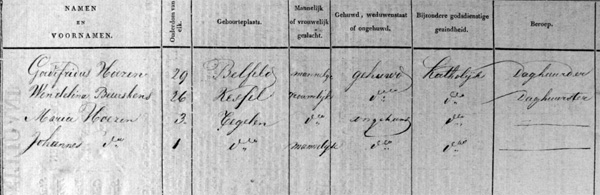 NAMEN EN VOORNAMEN. Ouderdom van elk. Geboorteplaats. Mannelijk of vrouwelijk geslacht. Gehuwd, weduwenstaat of ongehuwd. Bijzondere godsdienstige gezindheid. Beroep.
Godefridus Hoezen 29 Belfeld mannelijk gehuwd Katholijk Daghuurder
Wendelina Beurskens 26 Kessel vrouwelijk dito dito Daghuurster
Maria Hoezen 3. Tegelen dto ongehuwd dito
Johannes dto 1 dito mannelijk dito dito